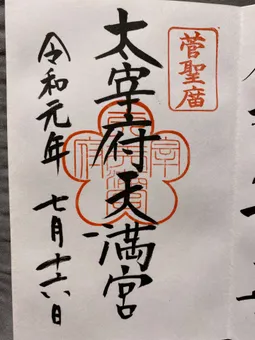 菅聖庿
太宰府天満宮
令和元年 七月十六日